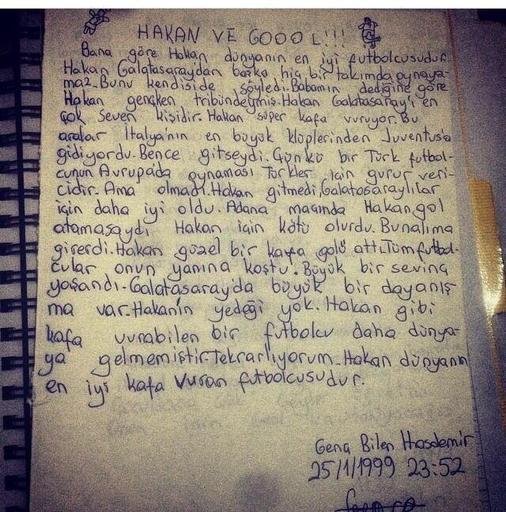 HAKAN VE GOOOL!!!
Bana göre Hakan dünyanın en iyi futbolcusudur.
Hakan Galatasaraydan başka hiç bir takımda oynaya-
maz. Bunu kendiside söyledi. Babamın dediğine göre
Hakan gençken tribündeymiş. Hakan Galatasaray'ı en
çok seven kişidir. Hakan süper kafa vuruyor. Bu
aralar İtalya'nın en büyük klüplerinden Juventus'a
gidiyordu. Bence gitseydi. Çünkü bir Türk futbol-
cunun Avrupada oynaması Türkler için gurur veri-
cidir. Ama olmadı. Hakan gitmedi. Galatasaraylılar
için daha iyi oldu. Adana maçında Hakan gol
atamasaydı Hakan için kötü olurdu. Bunalıma
girerdi. Hakan güzel bir kafa golü attı. Tüm futbol-
cular onun yanına koştu. Büyük bir sevinç
yaşandı. Galatasarayda büyük bir dayanış
ma var. Hakanin yedeği yok. Hakan gibi
kafa vurabilen bir futbolcu daha dünya-
ya gelmemiştir tekrarlıyorum. Hakan dünyanın
en iyi kafa vuran futbolcusudur.
Genç Bilen Hasdemir
25/1/1999 23:52